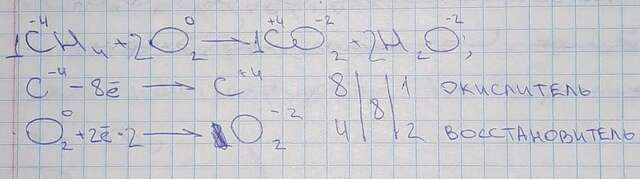 1C⁻⁴H₄ + 2O₂⁰ → 1C⁺⁴O₂⁻² + 2H₂O⁻²;
C⁻⁴ - 8ē → C⁺⁴ 8 | 8 | 1 ОКИСЛИТЕЛЬ
O₂⁰ + 2ē · 2 → O₂⁻² 4 | 8 | 2 ВОССТАНОВИТЕЛЬ